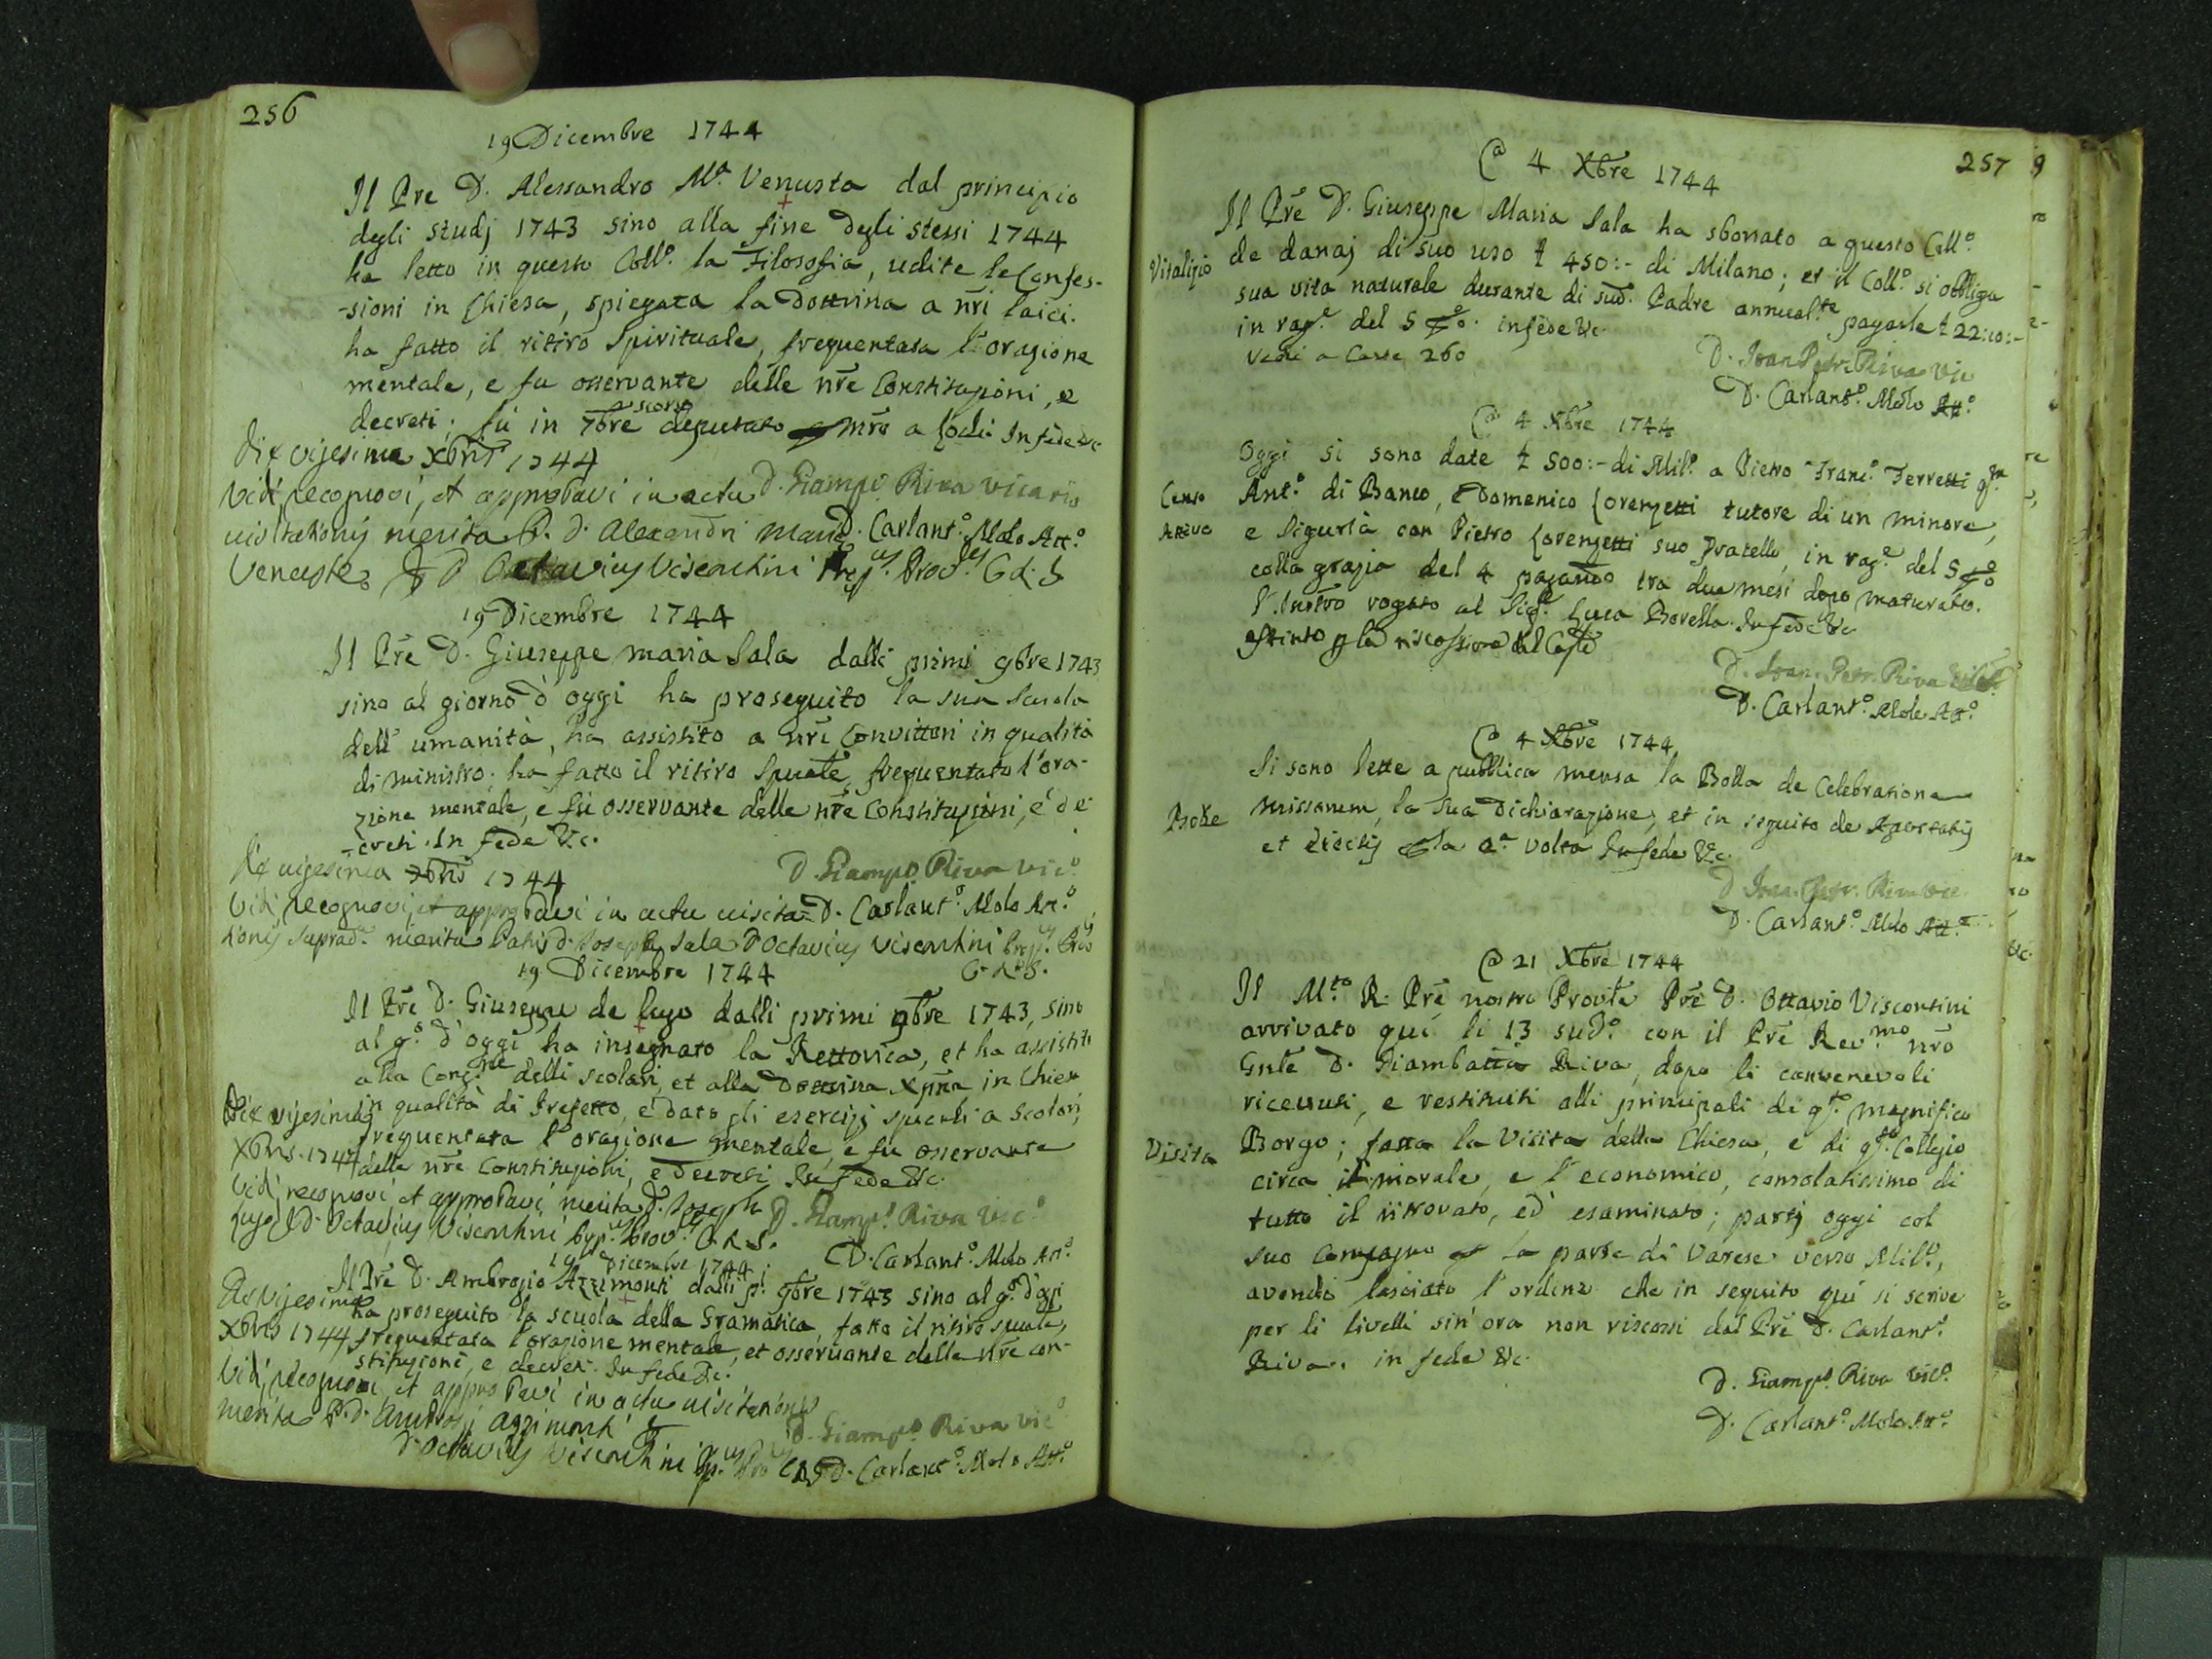 256
19 Dicembre 1744
Il Pre D. Alessandro Mᵃ. Venusta dal principio
degli studj 1743 sino alla fine degli stessi 1744
ha letto in questo Collº. la Filosofia, udite le Confes-
-sioni in Chiesa, spiegata la dottrina a nr̃i laici.
ha fatto il ritiro Spirituale, frequentata l'orazione
mentale, e fu osservante delle nr̃e Constituzioni, e
decreti; fù in 7bre scorso deputato mr̃o a Lodi. In fede &c
Die vigesima Xbris 1744
Vidi, recognovi, et approbavi in actu D. Giampº. Riva vicario
visitationis merita P. D. Alexandri Mariæ D. Carlantº. Molo Attº.
Venustæ D Octavius Viscontini Prep.us Prov.lis C. R. S
19 Dicembre 1744
Il Pr̃e D. Giuseppe maria Sala dalli primi 9bre 1743
sino al giorno d'oggi ha proseguito la sua scuola
dell'umanità, ha assistito a nr̃i Convittori in qualità
di ministro; ha fatto il ritiro Spũale, frequentato l'ora-
zione mentale, e fù osservante delle nr̃e Constituzioni, e de-
-creti. In fede &c.
Die vigesima Xbris 1744
D. Giampº. Riva Vicº.
Vidi, recognovi, et approbavi in actu visita- D. Carlantº. Molo Attº.
tionis suprad. merita Patris D. Joseph Sala D Octavius Viscontini Prep.us Prov
C. R. S.
19 Dicembre 1744
Il Pr̃e D. Giuseppe de Lugo dalli primi 9bre 1743, sino
al gº. d'oggi ha insegnato la Rettorica, et ha assistito
alla Cong.ne delli scolari, et alla Dottrina Xp̃na in Chiesa
Die vigesima in qualità di Prefetto, e dato gli esercizj spũali a scolari,
Xbris. 1744 frequentata l'orazione mentale, e fu osservante
delle nr̃e Constituzioni, e decreti. In fede &c.
Vidi, recognovi, et approbavi merita D. Joseph D. Giampº. Riva Vicº
Lugo D. Octavius Viscontini Prep.us Prov.lis C. R. S. D. Carlantº. Molo Attº.
19 Dicembre 1744
Il Pr̃e D. Ambrogio Azzimonti dalli p.i 9bre 1743 sino al gº. d'oggi
Die vigesima ha proseguito la scuola della Gramatica, fatto il ritiro spũale,
Xbris 1744 frequentata l'orazione mentale, et osservante delle nr̃e con-
stituzioni, e decreti. In fede &c.
Vidi, recognovi, et approbavi in actu visitationis
merita P. D. Ambrosij Azzimonti D. Giampº. Riva Vicº
D. Octavius Viscontini Pp.us Prov.lis C R S D. Carlantº. Molo Attº.
257
Cª 4 Xbre 1744
Il Pr̃e D. Giuseppe Maria Sala ha sborsato a questo Collº.
Vitalizio de danaj di suo uso £ 450:- di Milano; et il Collº. si obbliga
sua vita naturale durante di sud. Padre annual.te pagarle £ 22:10:-
in rag.e del 5 in fede &c.
Vedi a Carte 260 D. Joan Petr. Riva Vic
D. Carlantº. Molo Attº.
Cª 4 Xbre 1744
Oggi si sono date £ 500:- di Milº. a Pietro Francº. Ferretti q.m
Censo Attivo Antº. di Banco, e Domenico Lorenzetti tutore di un minore,
e Sigurtà con Pietro Lorenzetti suo fratello, in rag.e del 5
colla grazia del 4 pagando tra due mesi dopo maturato.
l'Instr̃o rogato al Sig.r Luca Borella. In fede &c
estinto la riscossione del Cap̃le
D. Joan. Petr. Riva
D. Carlantº. Molo Attº.
Cª 4 Xbre 1744
Si sono lette a pubblica mensa la Bolla de Celebratione
Bolle missarum, la sua Dichiarazione, et in seguito de Apostatis
et Eiectis la 2ª volta In fede &c.
D Joan. Petr. Riva Vic
D. Carlantº. Molo Attº.
Cª 21 Xbre 1744
Il M.to R. Pr̃e nostro Proṽle Pr̃e D. Ottavio Viscontini
arrivato quì li 13 sudº. con il Pr̃e Rev.mo nr̃o
Gn̄le D. Giambatta Riva, dopo li convenevoli
ricevuti, e restituiti alli principali di q.to magnifico
Visita Borgo; fatta la Visita della Chiesa, e di q.to Collegio
circa il morale, e l'economico, consolatissimo di
tutto il ritrovato, ed esaminato; partj oggi col
suo Compagno la parte di Varese verso Milº.,
avendo lasciato l'ordine che in seguito quì si scrive
per li livelli sin'ora non riscossi dal Pr̃e D. Carlantº.
Riva. in fede &c.
D. Giampº. Riva Vicº.
D. Carlantº. Molo Attº.